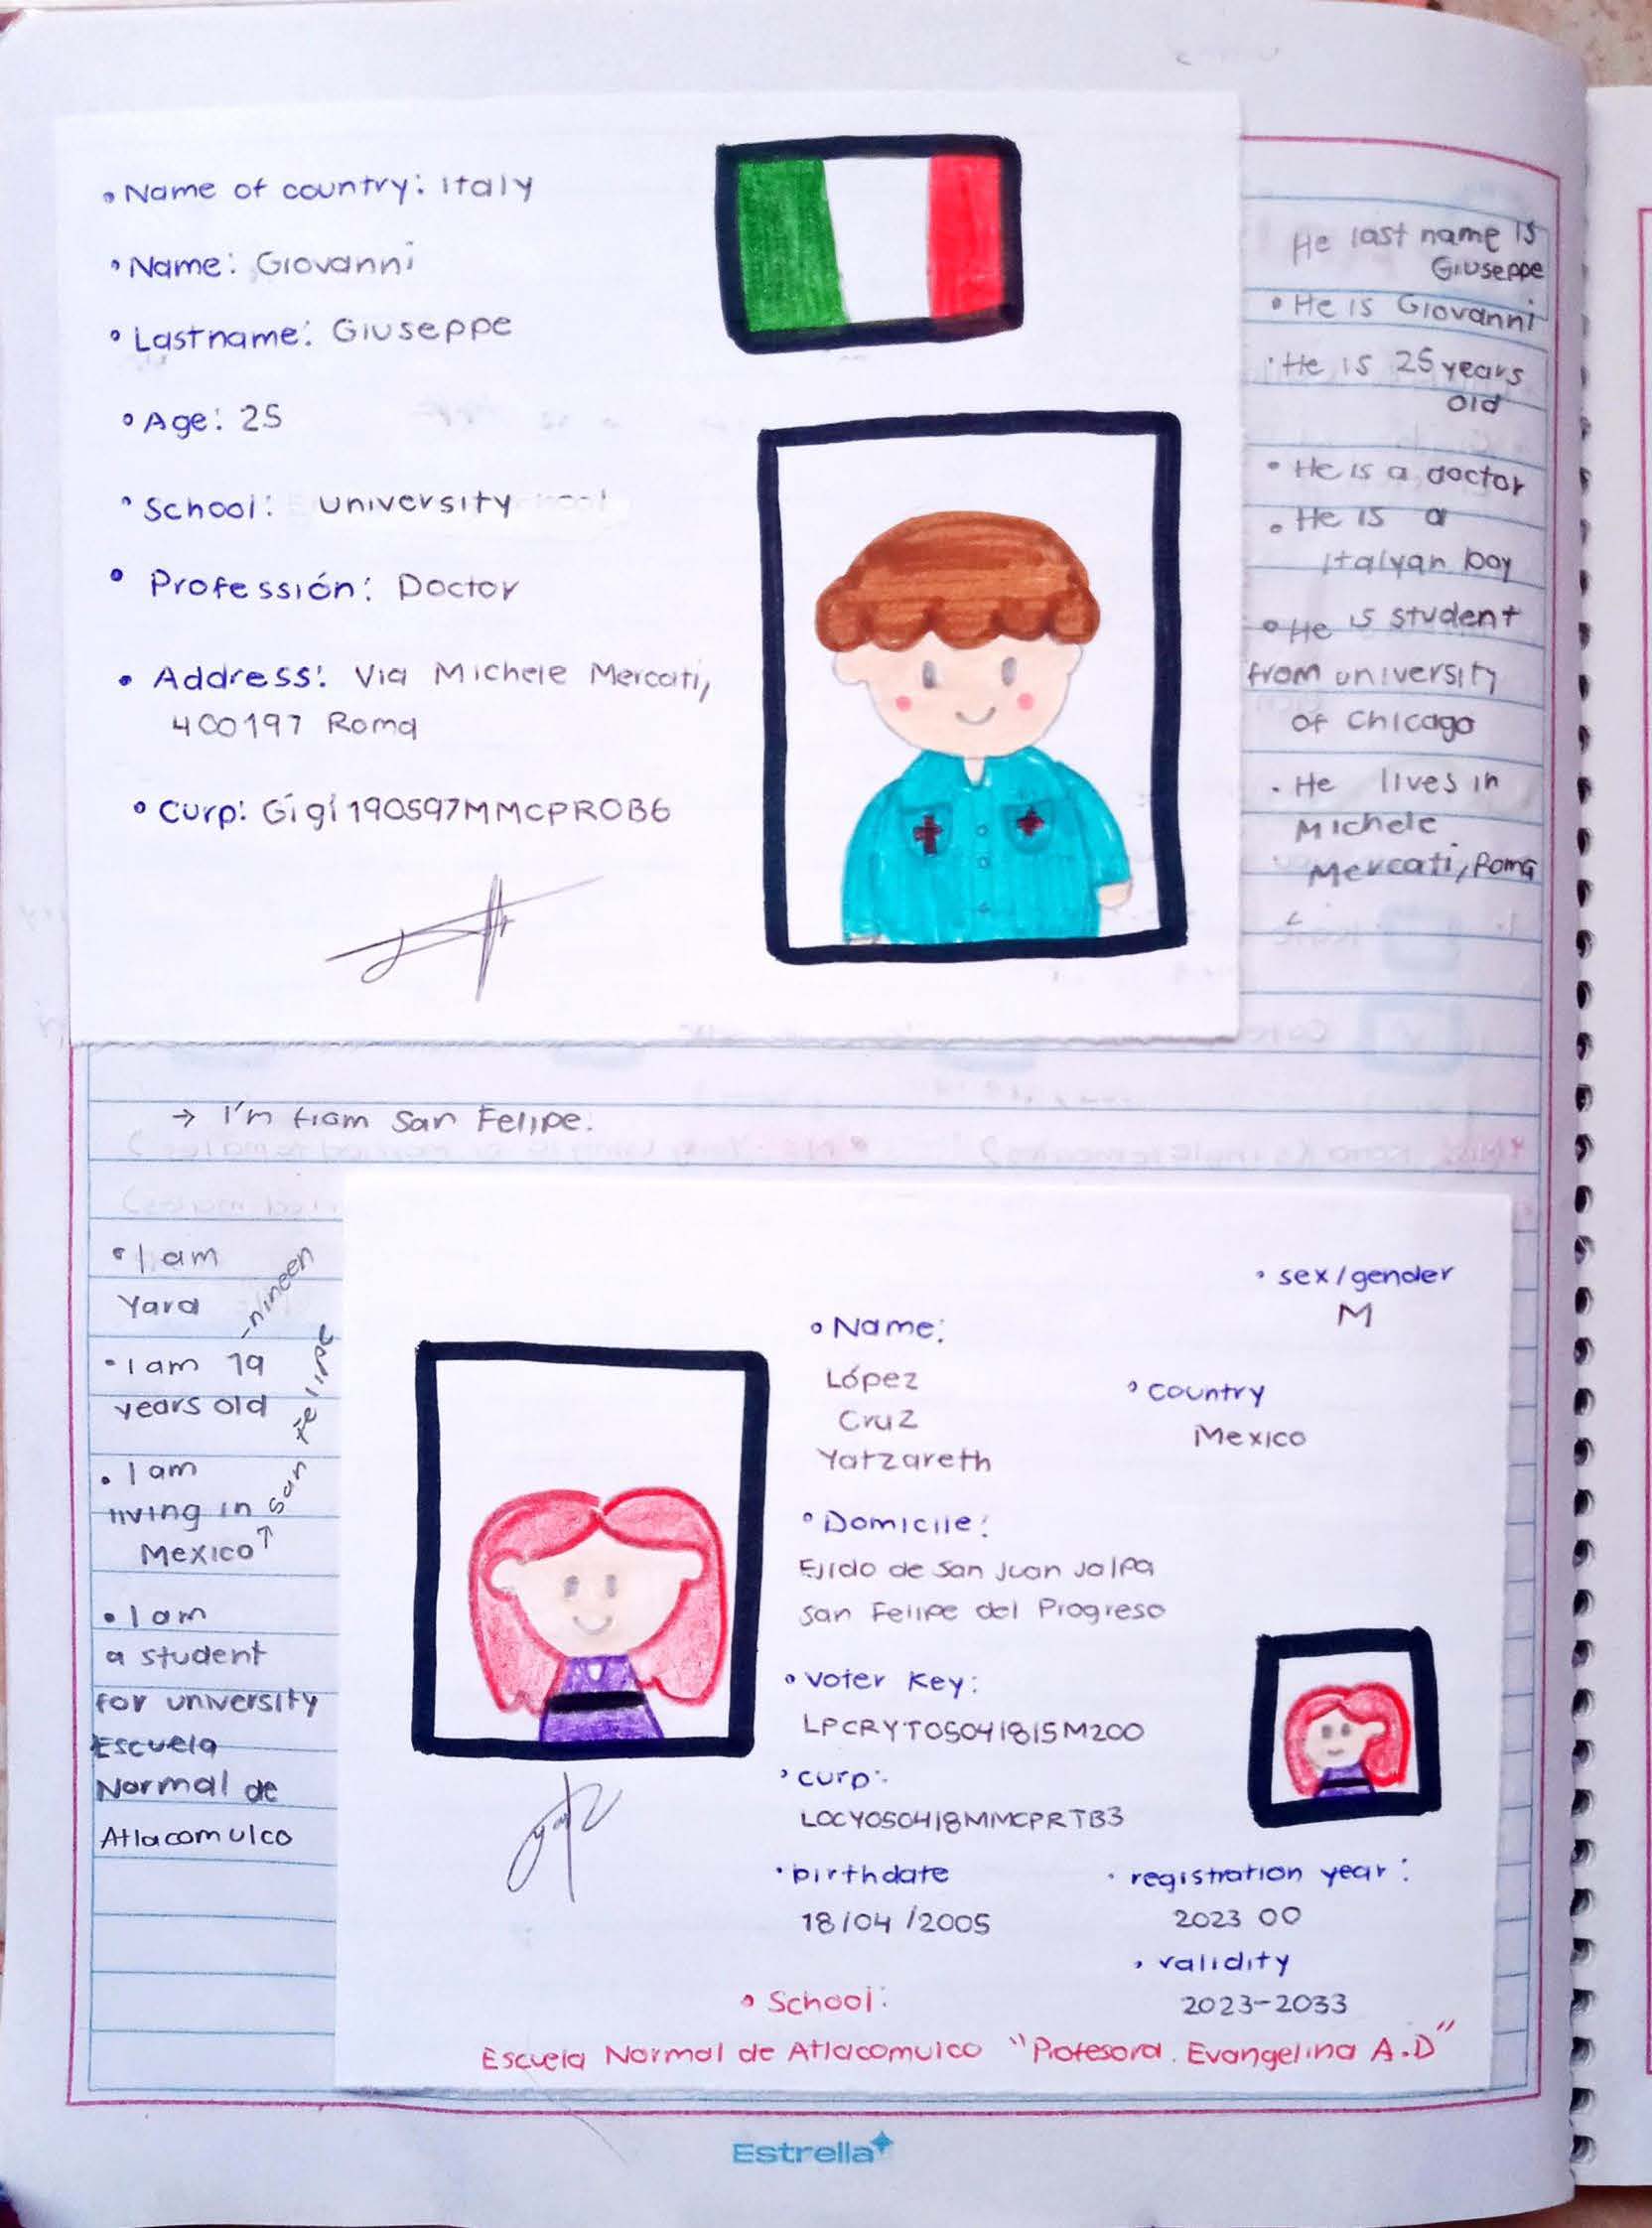 • Name of country: Italy
• Name: Giovanni
• Lastname: Giuseppe
• Age: 25
• School: university
• Professión: Doctor
• Address: Via Michele Mercati,
400197 Roma
• Curp: Gigi190597MMCPROB6
He last name is
Giuseppe
• He is Giovanni
• He is 25 years
old
• He is a doctor
• He is a
Italyan boy
• He is student
from university
of Chicago
• He lives in
Michele
Mercati, Roma
→ I'm from San Felipe.
• I am
Yara
• I am 19
years old
-nineen
• I am
living in
Mexico↑
San Felipe
• I am
a student
for university
Escuela
Normal de
Atlacomulco
• sex/gender
M
• Name:
López
Cruz
Yatzareth
• country
Mexico
• Domicile:
Ejido de San Juan Jalpa
San Felipe del Progreso
• Voter Key:
LPCRYT05041815M200
• curp:
LOCY050418MMCPRTB3
• birthdate
18/04/2005
• registration year:
2023 00
• validity
2023-2033
• School:
Escuela Normal de Atlacomulco "Profesora. Evangelina A.D"
Estrella